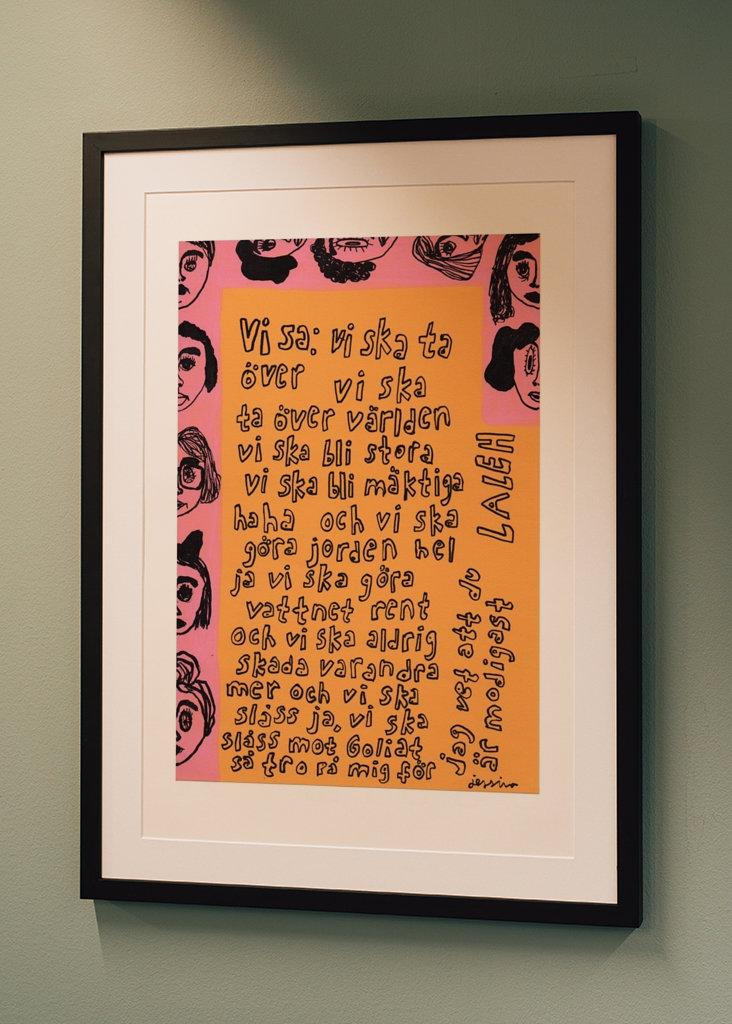 Vi sa: vi ska ta
över vi ska
ta över världen
vi ska bli stora
vi ska bli mäktiga
haha och vi ska
göra jorden hel
ja vi ska göra
vattnet rent
och vi ska aldrig
skada varandra
mer och vi ska
slåss ja, vi ska
slåss mot Goliat
så tro på mig för
jag vet att du
är modigast
LALEH
jessica